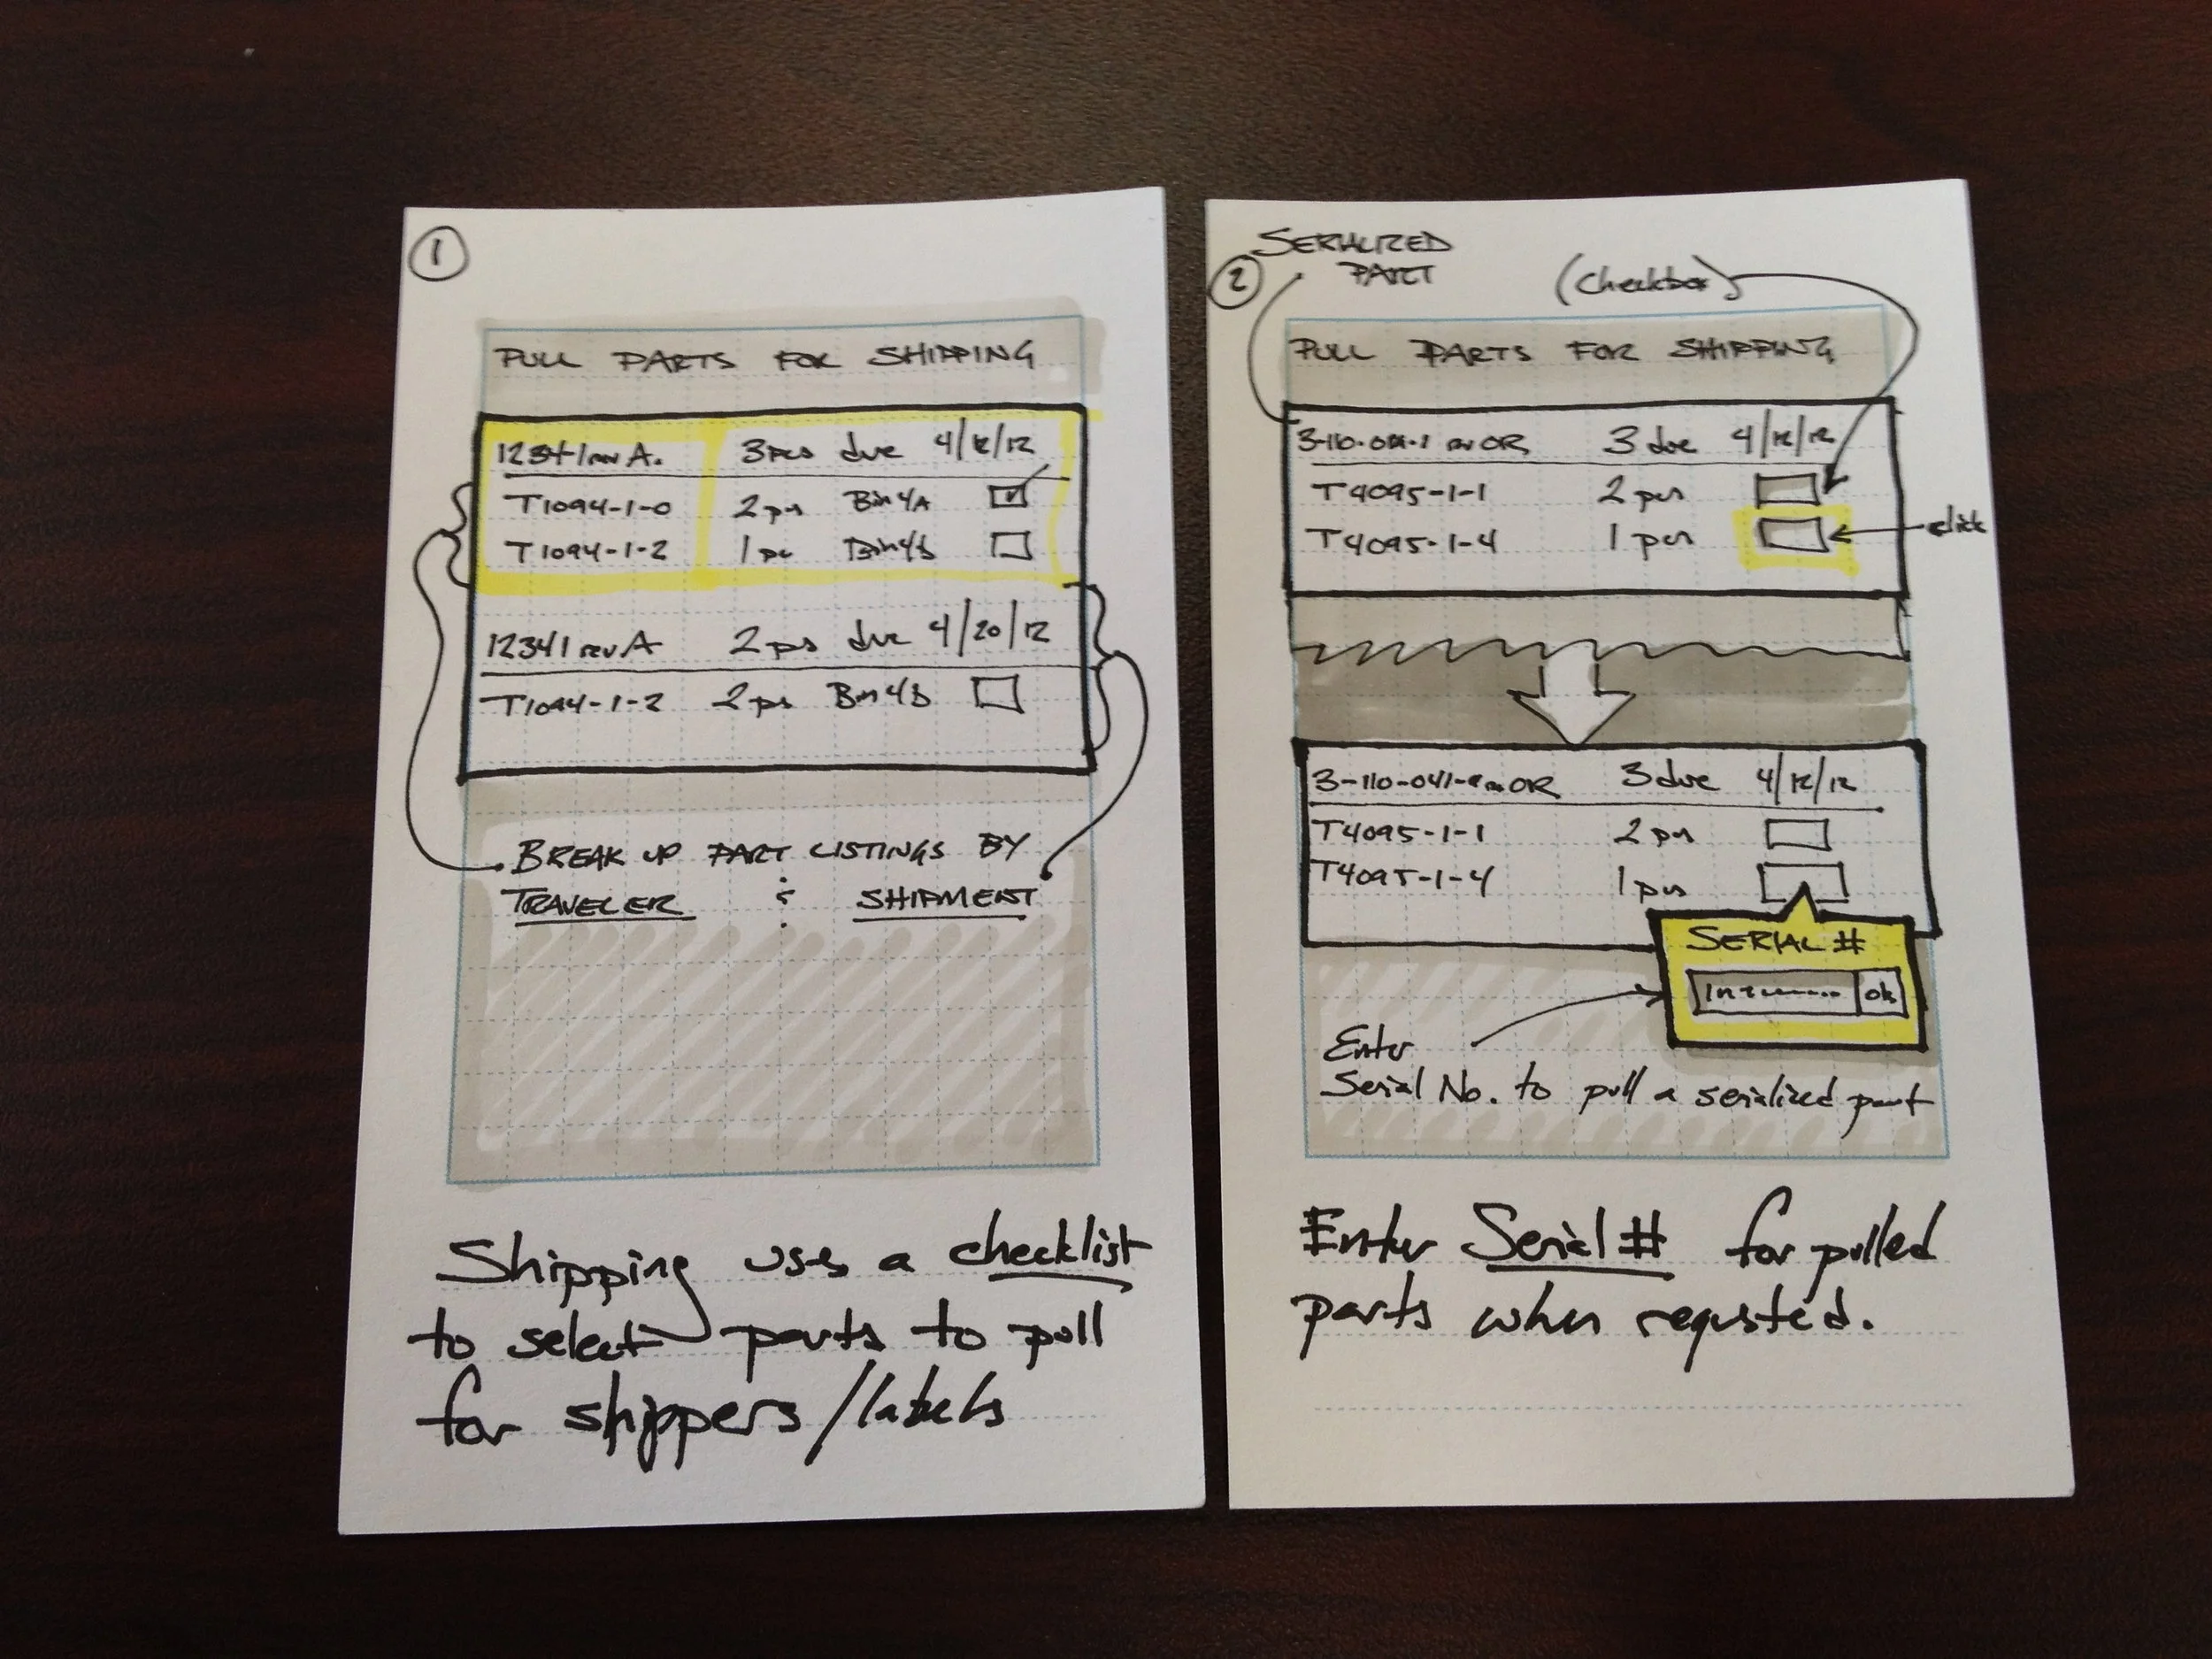 1
PULL PARTS FOR SHIPPING
12341 rev A. 3 pcs due 4/12/12
T1094-1-0 2 pcs Bin 4A
T1094-1-2 1 pc Bin 4B
12341 rev A 2 pcs due 4/20/12
T1094-1-2 2 pcs Bin 4B
BREAK UP PART LISTINGS BY
TRAVELER & SHIPMENT
Shipping uses a checklist
to select parts to pull
for shippers/labels
2
SERIALIZED
PART
(checkbox)
PULL PARTS FOR SHIPPING
3-110-041-1 rev OR 3 due 4/12/12
T4095-1-1 2 pcs
T4095-1-4 1 pcs
click
3-110-041- rev OR 3 due 4/12/12
T4095-1-1 2 pcs
T4095-1-4 1 pcs
SERIAL #
ok
Enter
Serial No. to pull a serialized part
Enter Serial # for pulled
parts when requsted.